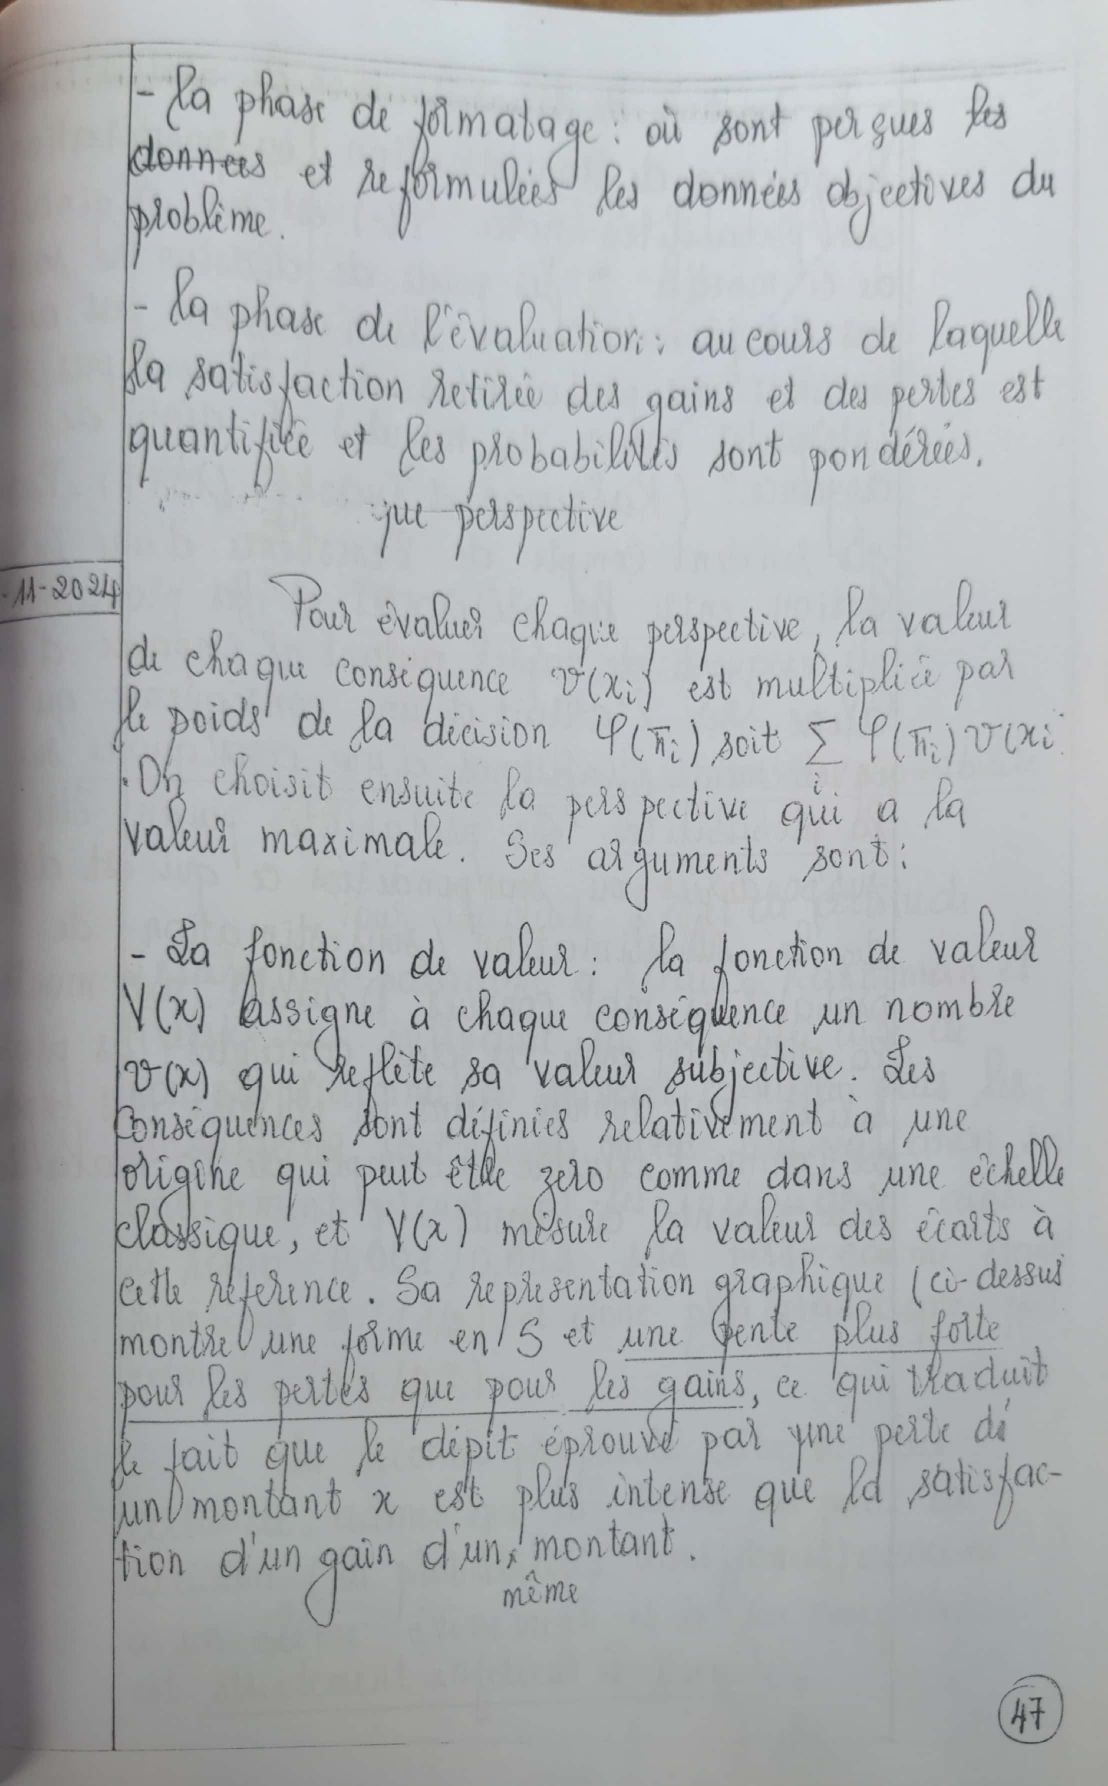 - La phase de formatage : où sont perçues les
données et reformulées les données objectives du
problème.
- La phase de l'évaluation : au cours de laquelle
la satisfaction retirée des gains et des pertes est
quantifiée et les probabilités sont pondérées.
que perspective
-11-2024
Pour évaluer chaque perspective, la valeur
de chaque conséquence v(xi) est multipliée par
le poids de la décision φ(πi) soit ∑i φ(πi) v(xi
. On choisit ensuite la perspective qui a la
valeur maximale. Ses arguments sont :
- La fonction de valeur : la fonction de valeur
V(x) assigne à chaque conséquence un nombre
v(x) qui reflète sa valeur subjective. Les
conséquences sont définies relativement à une
origine qui peut être zéro comme dans une échelle
classique, et V(x) mesure la valeur des écarts à
cette référence. Sa représentation graphique (ci-dessus
montre une forme en S et une pente plus forte
pour les pertes que pour les gains, ce qui traduit
le fait que le dépit éprouvé par une perte de
un montant x est plus intense que la satisfac-
tion d'un gain d'un montant.
même
47